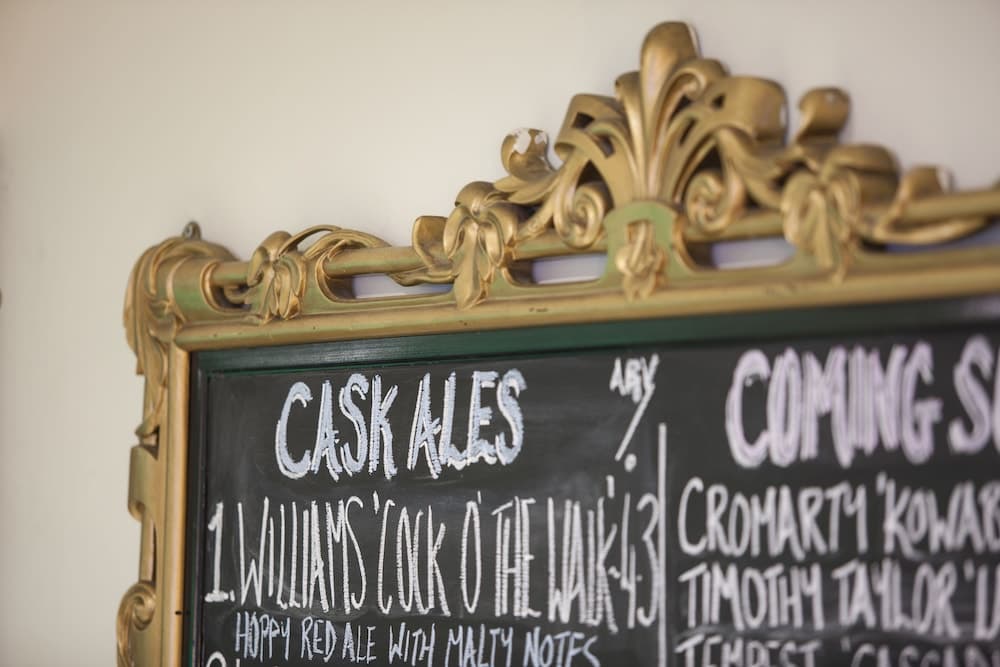 CASK ALES
ABV %
1. WILLIAMS 'COCK O' THE WALK' 4.3
HOPPY RED ALE WITH MALTY NOTES
COMING S
CROMARTY 'KOWAB
TIMOTHY TAYLOR
TEMPEST 'CASCAD